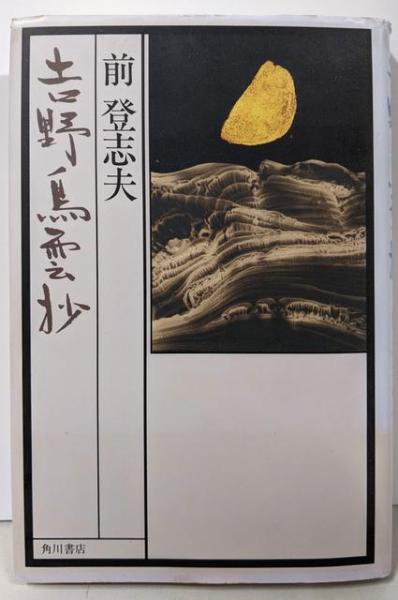 吉野鳥雲抄
前登志夫
角川書店